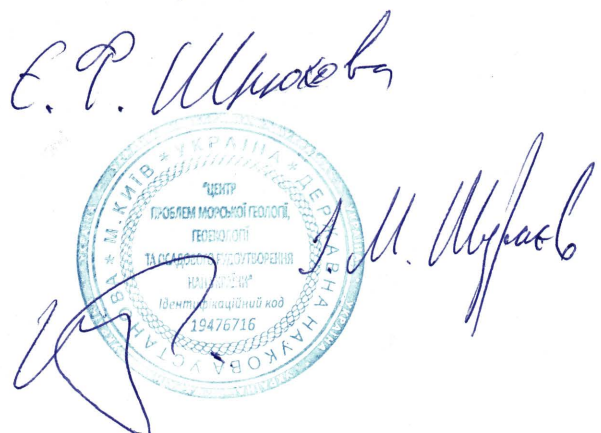 Є. Ф. Шнюкова
* М. КИЇВ * УКРАЇНА * ДЕРЖАВНА НАУКОВА УСТАНОВА
"ЦЕНТР
ПРОБЛЕМ МОРСЬКОЇ ГЕОЛОГІЇ,
ГЕОЕКОЛОГІЇ
ТА ОСАДОВОГО РУДОУТВОРЕННЯ
НАН УКРАЇНИ"
Ідентифікаційний код
19476716
І. М. Шураєв